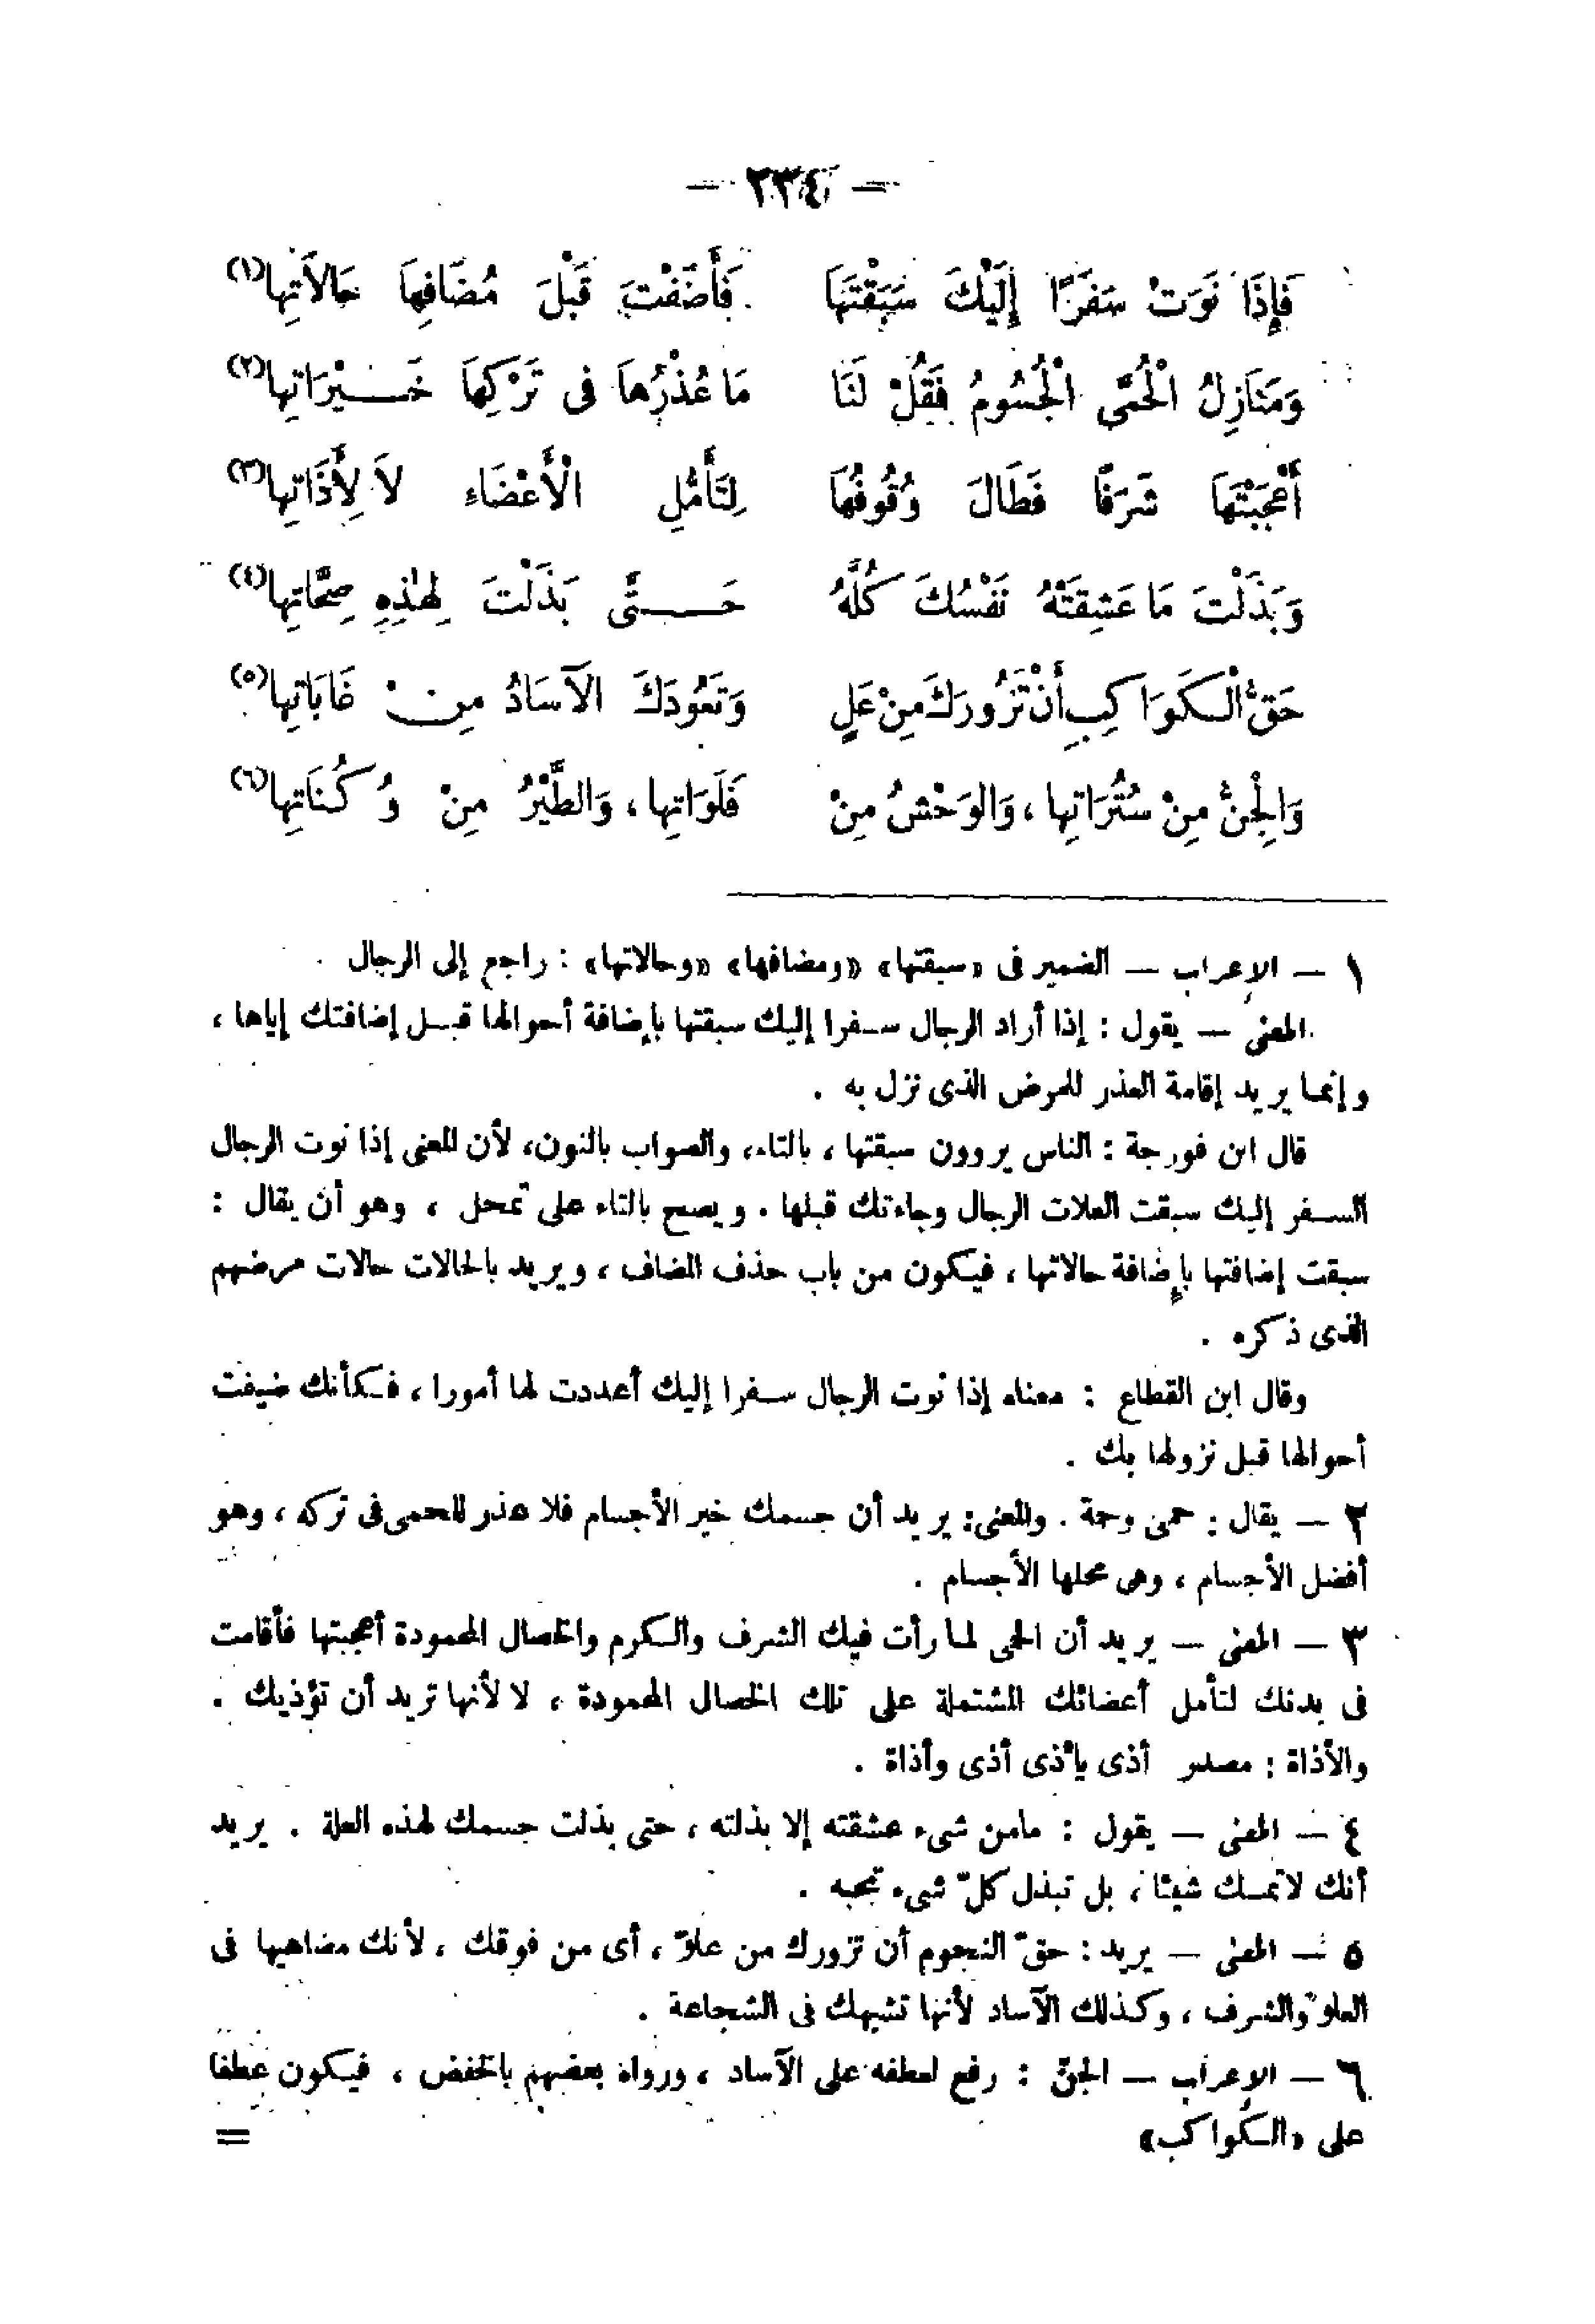 — ٢٣٤ —
فَإِذَا نَوَتْ سَفَرًا إِلَيْكَ سَبَقْتَهَا فَأَضَفْتَ قَبْلَ مُضَافِهَا حَالَاتِهَا (١)
وَمَنَازِلُ الْحُمَّى الْجُسُومُ فَقُلْ لَنَا مَا عُذْرُهَا فى تَرْكِهَا خَيْرَاتِهَا (٢)
أَعْجَبْتَهَا شَرَفًا فَطَالَ وُقُوفُهَا لِتَأَمُّلِ الْأَعْضَاءِ لَا لِأَذَاتِهَا (٣)
وَبَذَلْتَ مَا عَشِقَتْهُ نَفْسُكَ كُلَّهُ حَتَّى بَذَلْتَ لِهٰذِهِ صِحَّاتِهَا (٤)
حَقُّ الْكَوَاكِبِ أَنْ تَزُورَكَ مِنْ عَلٍ وَتَعُودَكَ الْآسَادُ مِنْ غَابَاتِهَا (٥)
وَالْجِنُّ مِنْ سُتُرَاتِهَا، وَالوَحْشُ مِنْ فَلَوَاتِهَا، وَالطَّيْرُ مِنْ وُكُنَاتِهَا (٦)
١ — الإعراب — الضمير فى «سبقتها» «ومضافها» «وحالاتها» : راجع إلى الرجال .
المعنى — يقول : إذا أراد الرجال سفرا إليك سبقتها بإضافة أحوالها قبل إضافتك إياها ،
وإنما يريد إقامة العذر للمرض الذى نزل به .
قال ابن فورجة : الناس يروون سبقتها ، بالتاء، والصواب بالنون، لأن المعنى إذا نوت الرجال
السفر إليك سبقت العلات الرجال وجاءتك قبلها . ويصح بالتاء على تمحل ، وهو أن يقال :
سبقت إضافتها بإضافة حالاتها ، فيكون من باب حذف المضاف ، ويريد بالحالات حالات مرضهم
الذى ذكره .
وقال ابن القطاع : معناه إذا نوت الرجال سفرا إليك أعددت لها أمورا ، فكأنك ضيفت
أحوالها قبل نزولها بك .
٢ — يقال : حمى وحمة . والمعنى: يريد أن جسمك خير الأجسام فلا عذر للحمى فى تركه ، وهو
أفضل الأجسام ، وهى محلها الأجسام .
٣ — المعنى — يريد أن الحمى لما رأت فيك الشرف والكرم والخصال المحمودة أعجبتها فأقامت
فى بدنك لتأمل أعضائك المشتملة على تلك الخصال المحمودة ، لا لأنها تريد أن تؤذيك .
والأذاة : مصدر أذى يأذى أذى وأذاة .
٤ — المعنى — يقول : مامن شىء عشقته إلا بذلته ، حتى بذلت جسمك لهذه العلة . يريد
أنك لاتمسك شيئا ، بل تبذل كلّ شىء تحبه .
٥ — المعنى — يريد : حقّ النجوم أن تزورك من علوّ ، أى من فوقك ، لأنك مضاهيها فى
العلوّ والشرف ، وكذلك الآساد لأنها تشبهك فى الشجاعة .
٦ — الإعراب — الجنّ : رفع لعطفه على الآساد ، ورواه بعضهم بالخفض ، فيكون عطفا
على «الكواكب» =